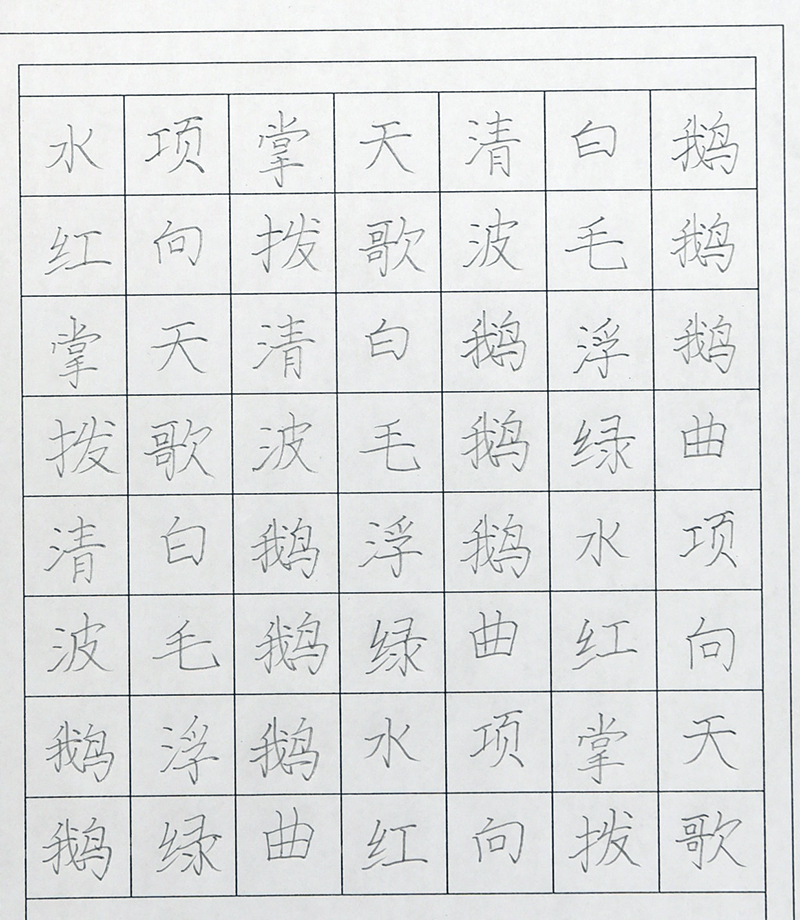 鹅鹅鹅曲项向天歌
白毛浮绿水红掌拨
清波鹅鹅鹅曲项向
天歌白毛浮绿水红
掌拨清波鹅鹅鹅曲
项向天歌白毛浮绿
水红掌拨清波鹅鹅